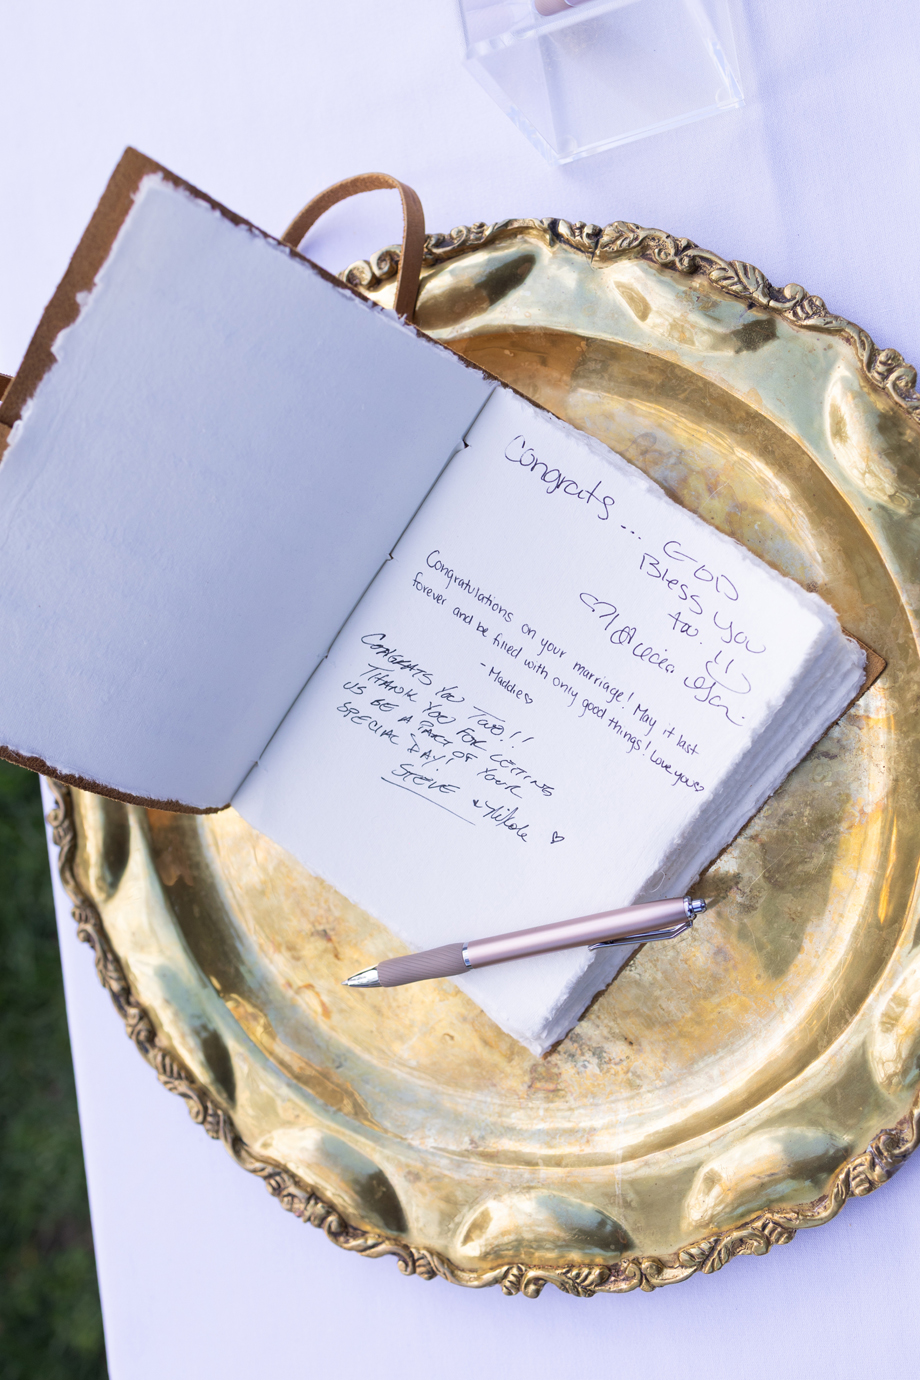 Congrats...
GOD
Bless you
two. !!
Congratulations on your marriage! May it last
forever and be filled with only good things! Love you♡
- Maddie♡
CONGRATS YOU TWO!!
THANK YOU FOR LETTING
US BE A PART OF YOUR
SPECIAL DAY!
STEVE & Nikole ♡